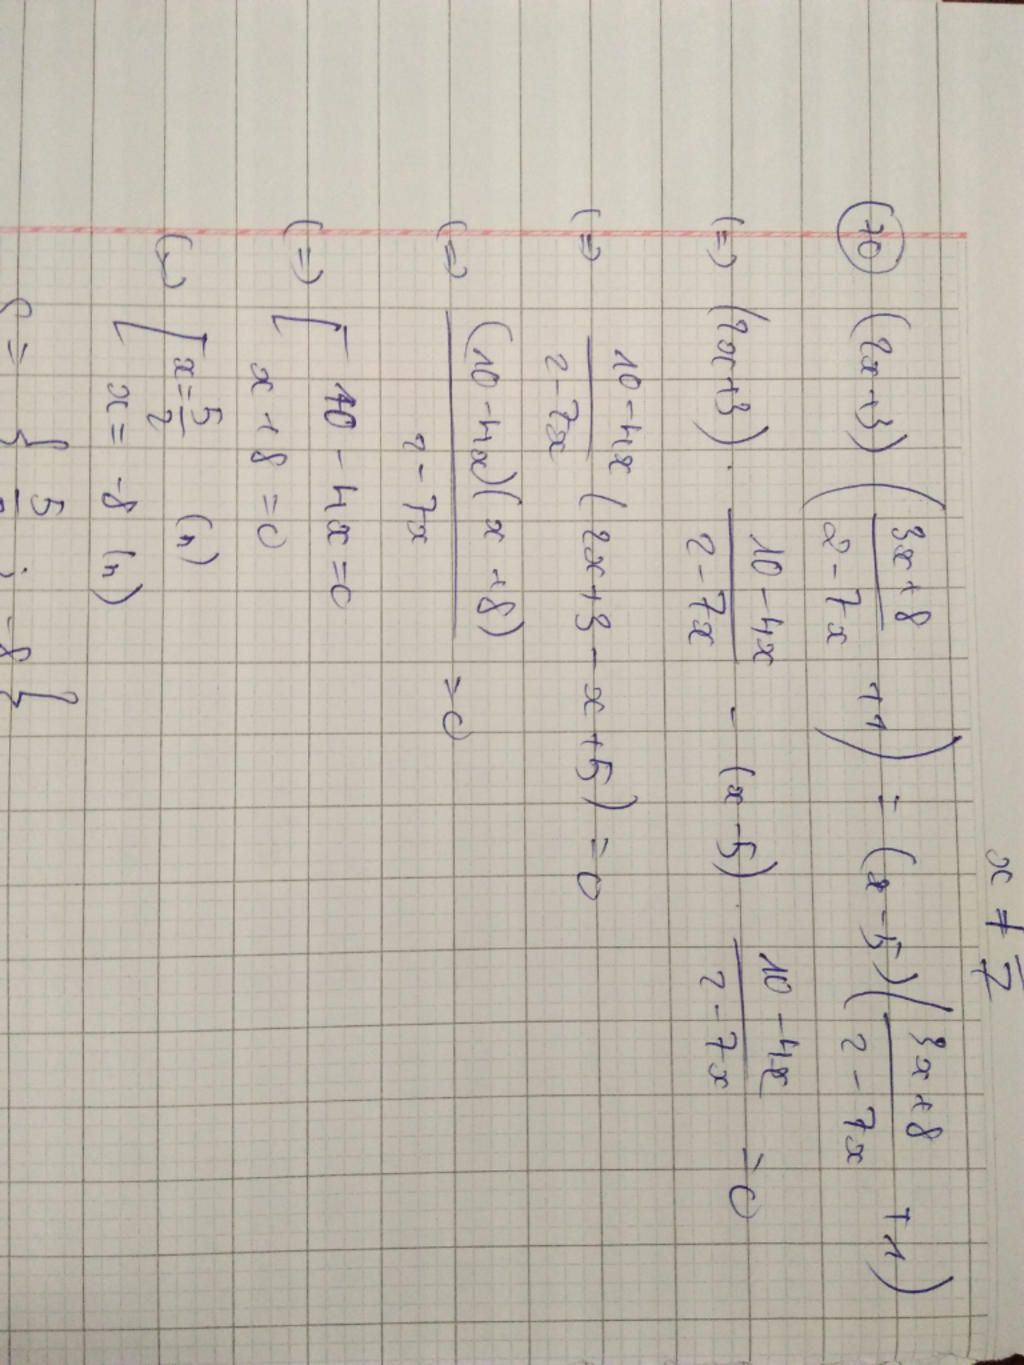 x ≠ /7
(70) (2x+3) ( (3x+8)/(2-7x) +1 ) = (x-5) ( (3x+8)/(2-7x) +1 )
(=) (2x+3) . (10-4x)/(2-7x) - (x-5) . (10-4x)/(2-7x) =0
(=) (10-4x)/(2-7x) (2x+3-x+5) =0
(=) (10-4x)(x+8)/(2-7x) =0
(=) [ 10-4x=0
x+8=0
[ x=5/2 (n)
x= -8 (n)
S = { 5/ ; -8 }